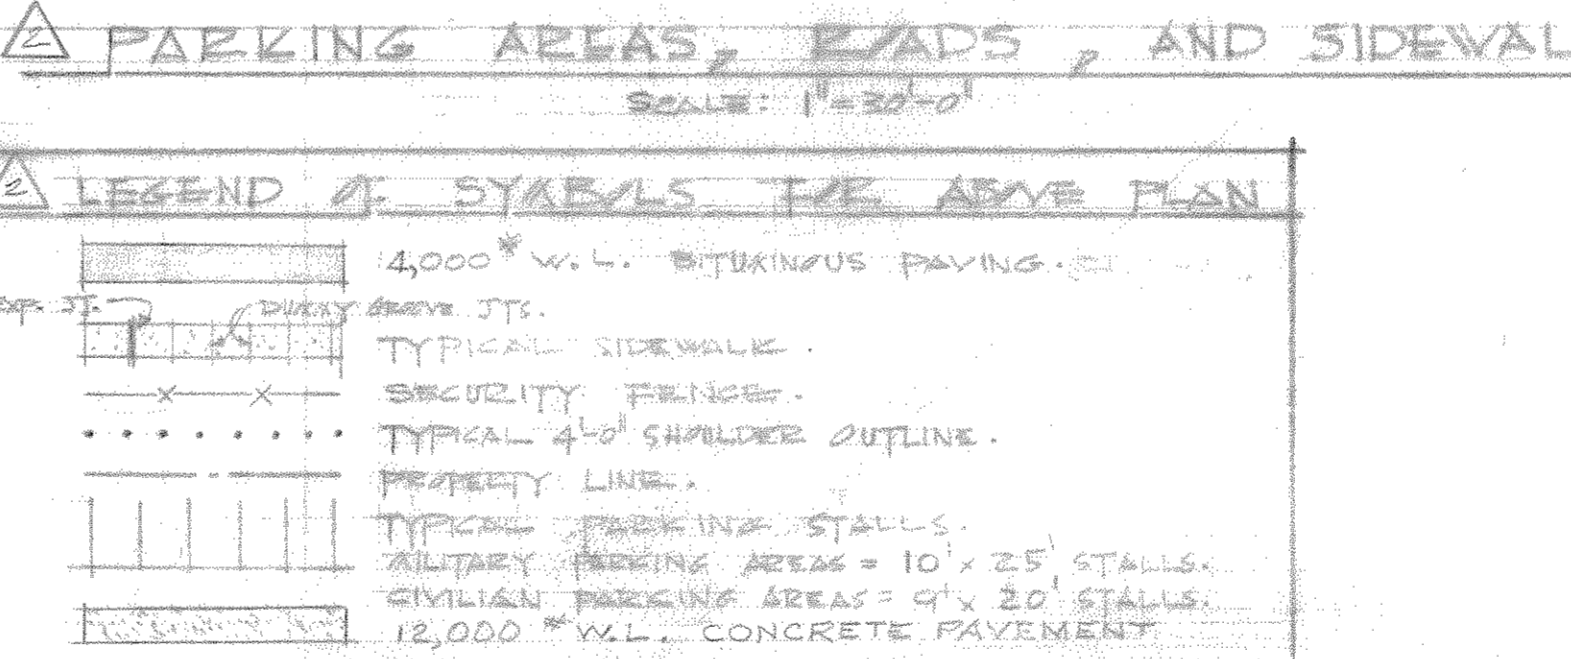 2 PARKING AREAS, ROADS, AND SIDEWAL
SCALE: 1"=30'-0"
2 LEGEND OF SYMBOLS FOR ABOVE PLAN
4,000# W.L. BITUMINOUS PAVING.
EXP. JT. DUMMY GROOVE JTS.
TYPICAL SIDEWALK.
SECURITY FENCE.
TYPICAL 4'-0" SHOULDER OUTLINE.
PROPERTY LINE.
TYPICAL PARKING STALLS.
MILITARY PARKING AREAS = 10' x 25' STALLS.
CIVILIAN PARKING AREAS = 9' x 20' STALLS.
12,000# W.L. CONCRETE PAVEMENT